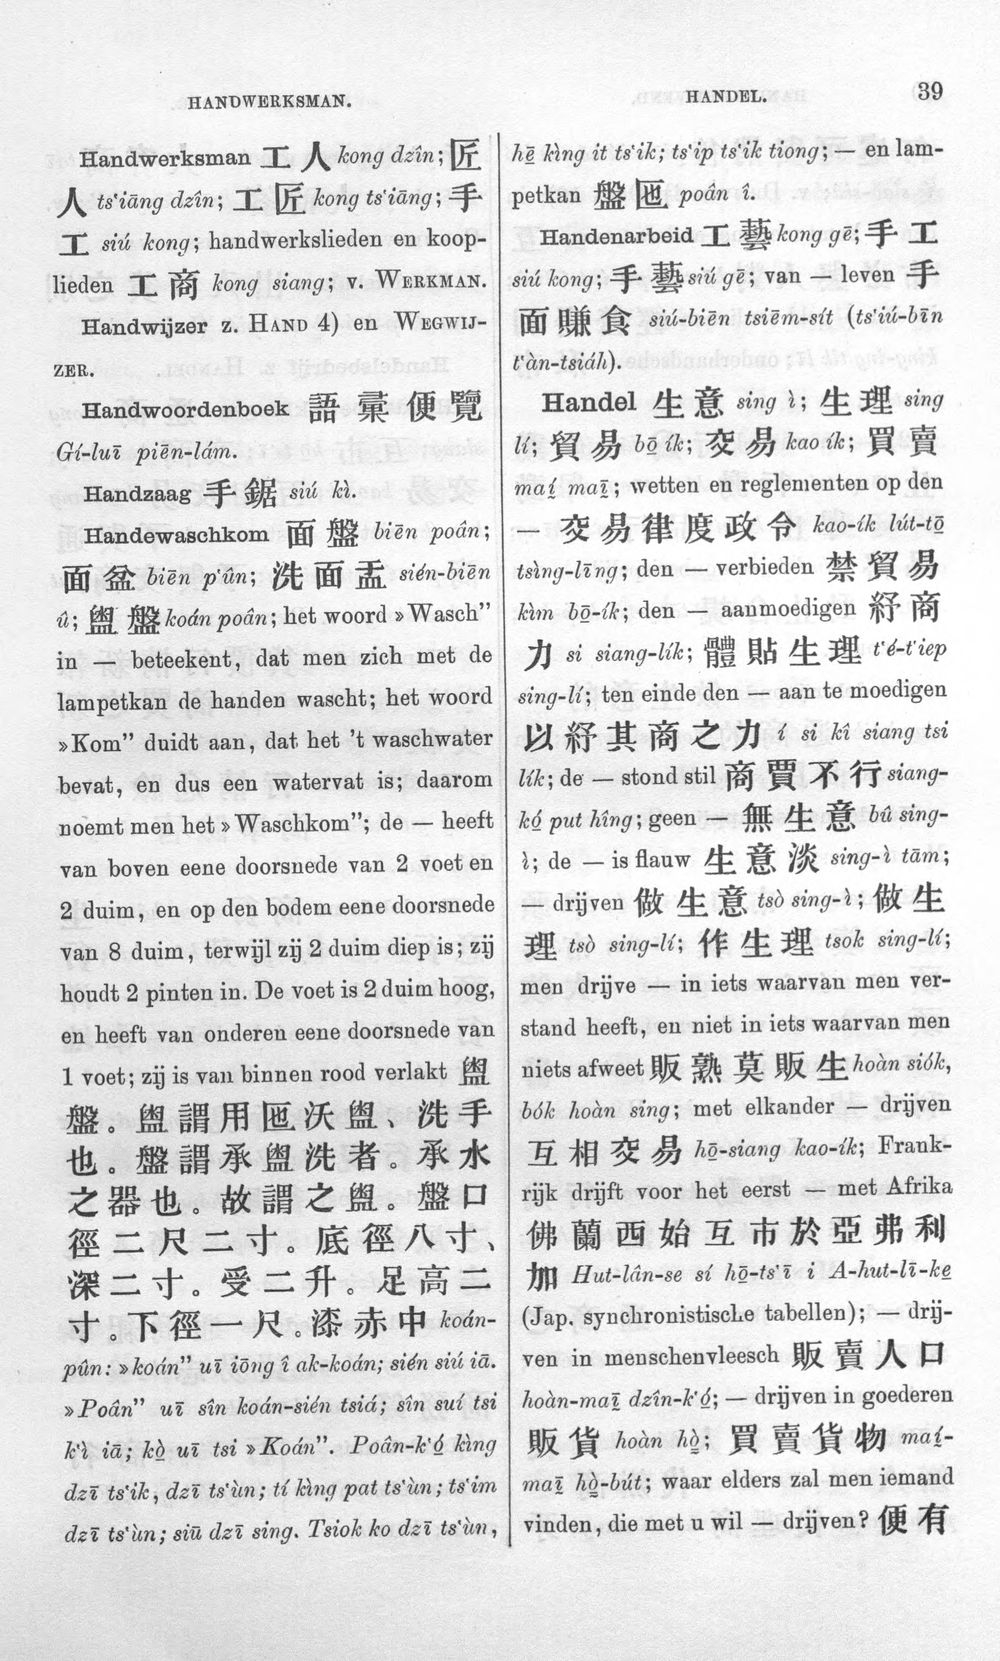 HANDWERKSMAN.
HANDEL.
39
Handwerksman 工人 kong dzîn; 匠
人 ts‘iāng dzîn; 工匠 kong ts‘iāng; 手
工 siú kong; handwerkslieden en koop-
lieden 工商 kong siang; v. WERKMAN.
Handwijzer z. HAND 4) en WEGWIJ-
ZER.
Handwoordenboek 語彙便覽
Gí-luī piēn-lám.
Handzaag 手鋸 siú kì.
Handewaschkom 面盤 biēn poân;
面盆 biēn p‘ûn; 洗面盂 sién-biēn
û; 盥盤 koán poân; het woord »Wasch”
in — beteekent, dat men zich met de
lampetkan de handen wascht; het woord
»Kom” duidt aan, dat het ’t waschwater
bevat, en dus een watervat is; daarom
noemt men het »Waschkom”; de — heeft
van boven eene doorsnede van 2 voet en
2 duim, en op den bodem eene doorsnede
van 8 duim, terwijl zij 2 duim diep is; zij
houdt 2 pinten in. De voet is 2 duim hoog,
en heeft van onderen eene doorsnede van
1 voet; zij is van binnen rood verlakt 盥
盤。盥謂用匜沃盥、洗手
也。盤謂承盥洗者。承水
之器也。故謂之盥。盤口
徑二尺二寸。底徑八寸、
深二寸。受二升。足高二
寸。下徑一尺。漆赤中 koán-
pûn: »koán” uī iōng î ak-koán; sién siú iā.
»Poân” uī sîn koán-sién tsiá; sîn suí tsi
k‘ì iā; kò̤ uī tsi »Koán”. Poân-k‘ó̤ kìng
dzī ts‘ik, dzī ts‘ùn; tí kìng pat ts‘ùn; ts‘im
dzī ts‘ùn; siū dzī sing. Tsiok ko dzī ts‘ùn,
hē̤ kìng it ts‘ik; ts‘ip ts‘ik tiong; — en lam-
petkan 盤匜 poân î.
Handenarbeid 工藝 kong gē; 手工
siú kong; 手藝 siú gē; van — leven 手
面賺食 siú-biēn tsiēm-sít (ts‘iú-bīn
t‘àn-tsiáh).
Handel 生意 sing ì; 生理 sing
lí; 貿易 bō̤ ík; 交易 kao ík; 買賣
maí̤ maī̤; wetten en reglementen op den
— 交易律度政令 kao-ík lút-tō̤
tsìng-līng; den — verbieden 禁貿易
kìm bō̤-ík; den — aanmoedigen 紓商
力 si siang-lík; 體貼生理 t‘é-t‘iep
sing-lí; ten einde den — aan te moedigen
以紓其商之力 í si kî siang tsi
lík; de — stond stil 商賈不行 siang-
kó̤ put hîng; geen — 無生意 bû sing-
ì; de — is flauw 生意淡 sing-ì tām;
— drijven 做生意 tsò sing-ì; 做生
理 tsò sing-lí; 作生理 tsok sing-lí;
men drijve — in iets waarvan men ver-
stand heeft, en niet in iets waarvan men
niets afweet 販熟莫販生 hoàn siók,
bók hoàn sing; met elkander — drijven
互相交易 hō̤-siang kao-ík; Frank-
rijk drijft voor het eerst — met Afrika
佛蘭西始互市於亞弗利
加 Hut-lân-se sí hō̤-ts‘ī i A-hut-lī-ke̤
(Jap. synchronistische tabellen); — drij-
ven in menschenvleesch 販賣人口
hoàn-maī̤ dzîn-k‘ó̤; — drijven in goederen
販貨 hoàn hò̤; 買賣貨物 maí̤-
maī̤ hò̤-bút; waar elders zal men iemand
vinden, die met u wil — drijven? 便有